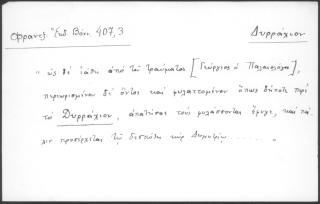 Φραντζ. Ἔκδ. Βόνν. 407,3
Δυρράχιον
"ὡς δὲ ἰάθη ἀπὸ τοῦ τραύματος [Γεώργιος ὁ Παλαιολόγος],
περιωρισμένου δὲ ὄντος καὶ φυλαττομένου ὅπως περὶ
τὸ Δυρράχιον, ἀπατήσας τοὺς φυλάσσοντας ἔφυγε, καὶ πά-
λιν προσέρχεται τῷ δεσπότῃ κὺρ Δημητρίῳ....... "